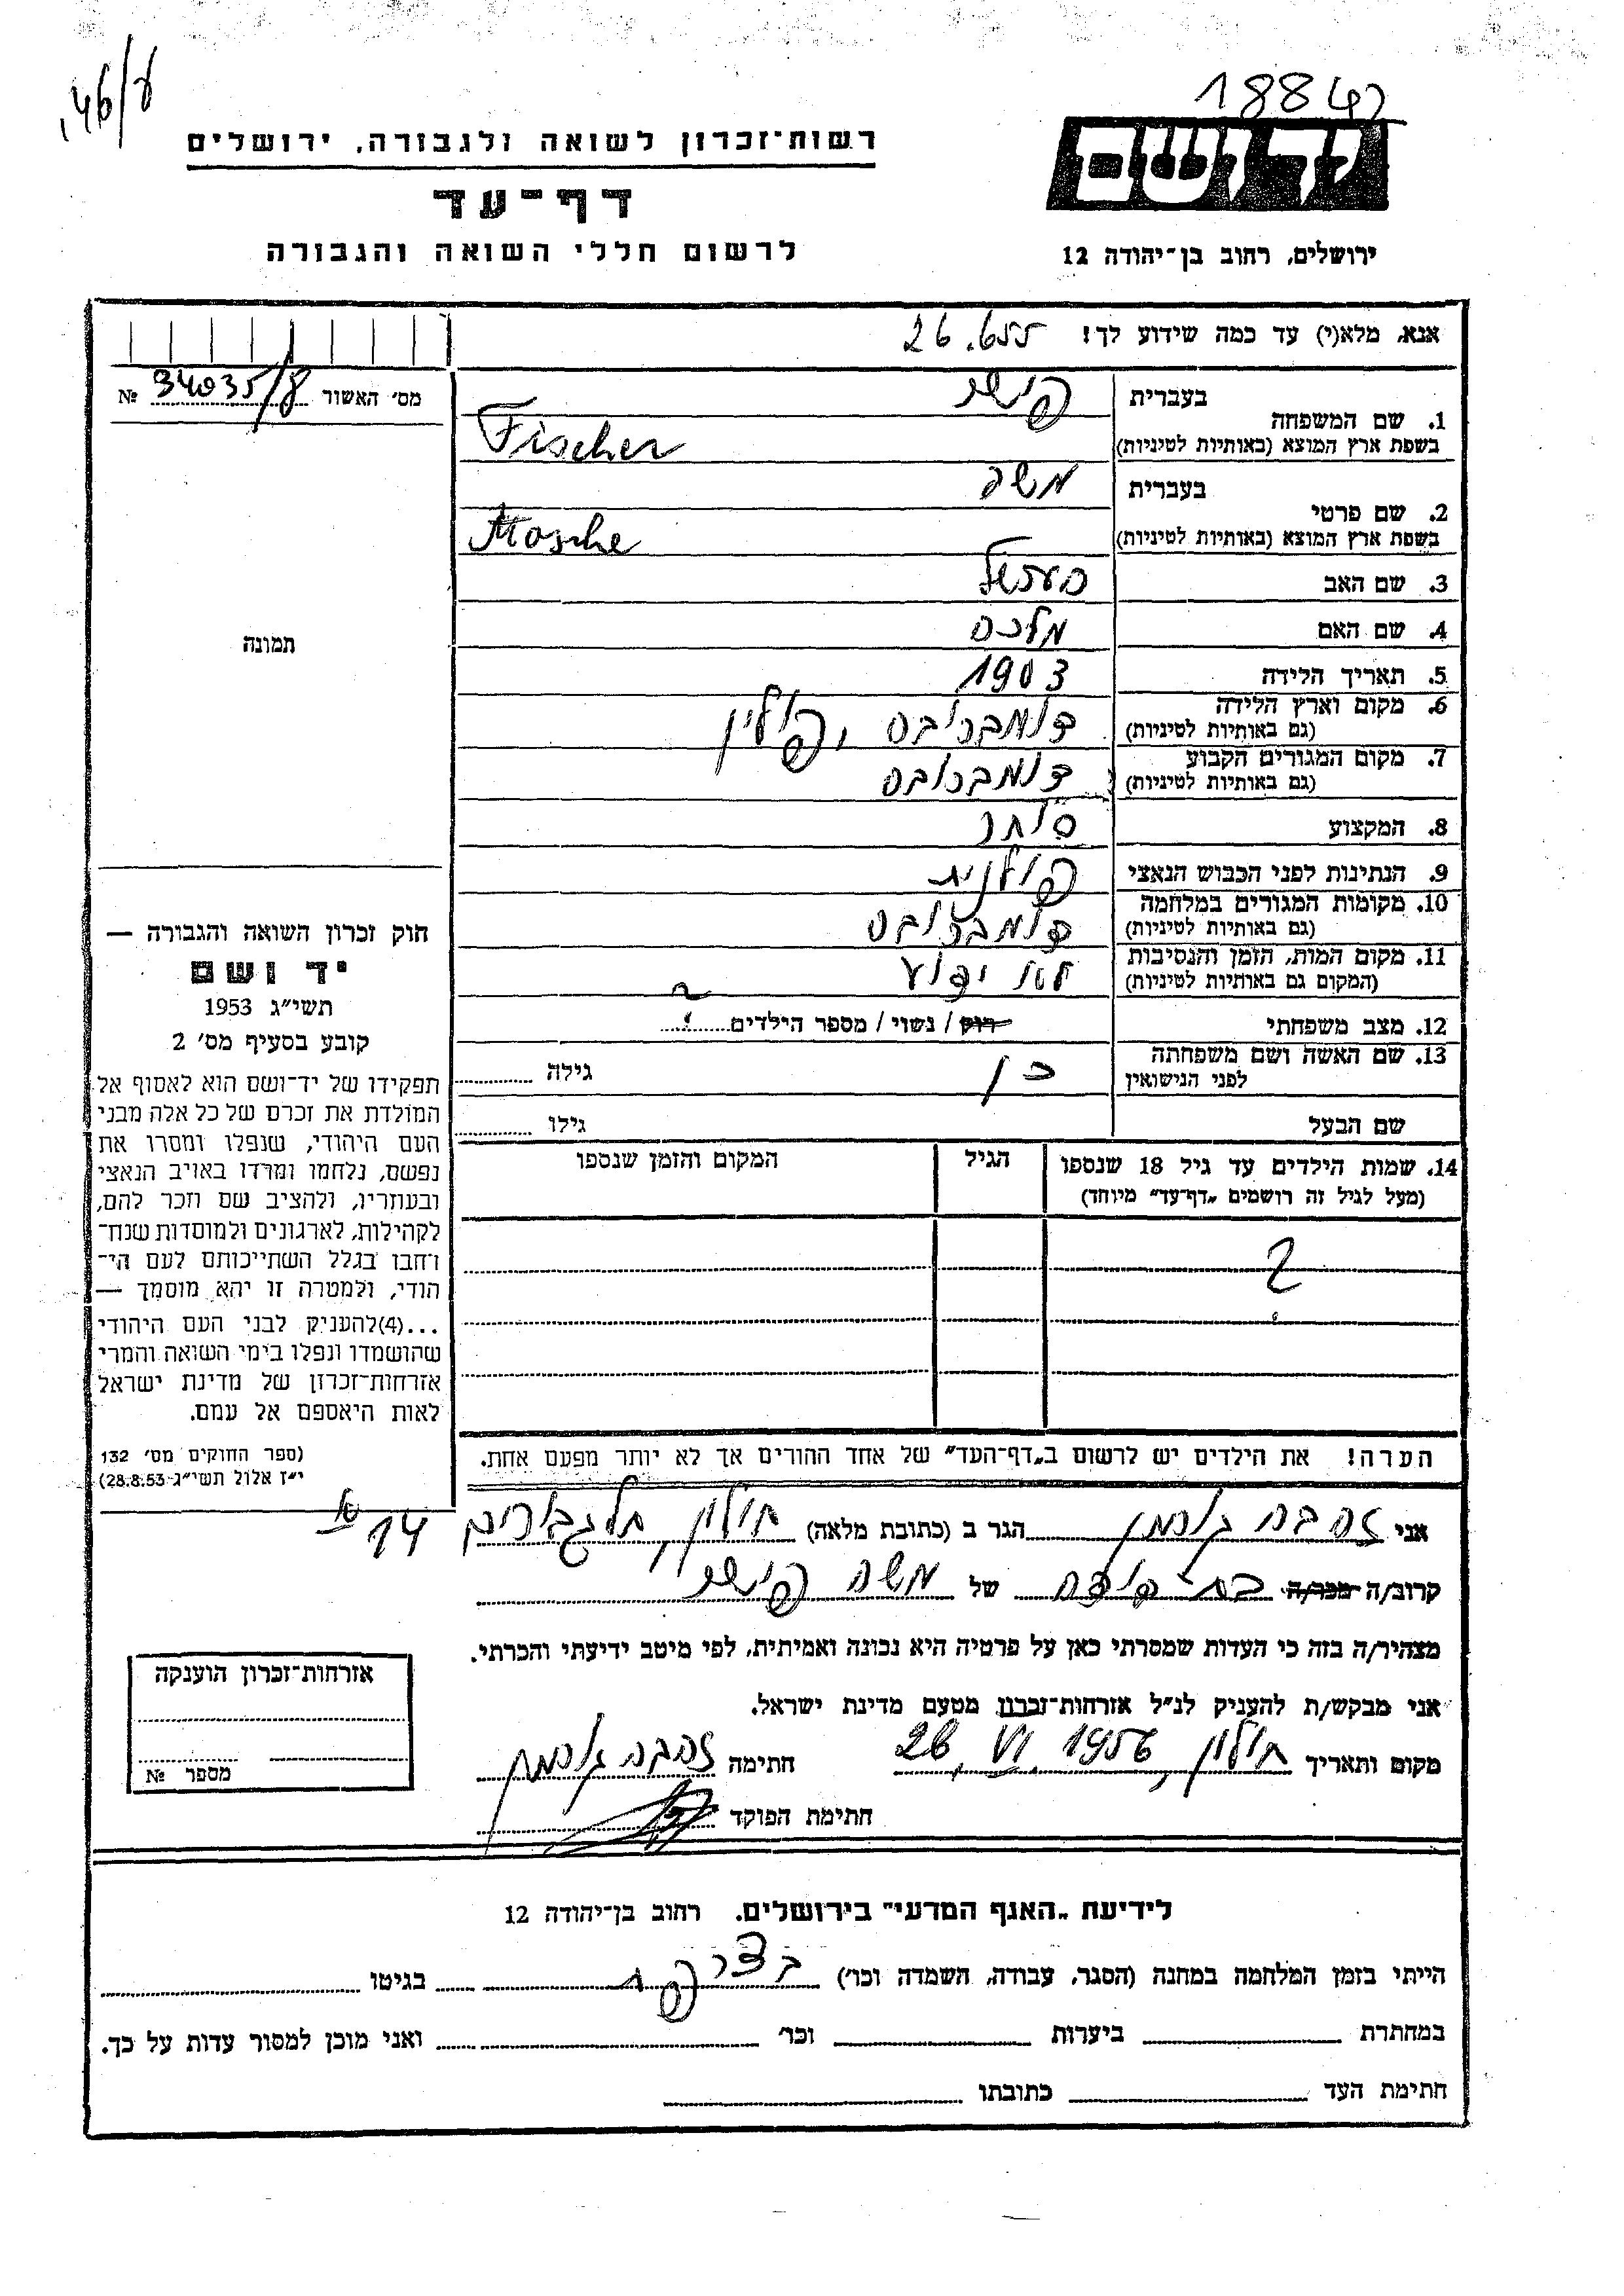 18847
146/ע
יד ושם
רשות־זכרון לשואה ולגבורה, ירושלים
דף־עד
לרשום חללי השואה והגבורה
ירושלים, רחוב בן־יהודה 12
אנא, מלא(י) עד כמה שידוע לך! 26.655
מס׳ האשור 34035/8 №
1. שם המשפחה בעברית פישר
בשפת ארץ המוצא (באותיות לטיניות) Fischer
2. שם פרטי בעברית משה
בשפת ארץ המוצא (באותיות לטיניות) Mosche
3. שם האב
4. שם האם מלכה
5. תאריך הלידה 1903
6. מקום וארץ הלידה דומברובה, פולין
(גם באותיות לטיניות)
7. מקום המגורים הקבוע דומברובה
(גם באותיות לטיניות)
8. המקצוע סוחר
9. הנתינות לפני הכבוש הנאצי פולנית
10. מקומות המגורים במלחמה דומברובה
(גם באותיות לטיניות)
11. מקום המות, הזמן והנסיבות לא ידוע
(המקום גם באותיות לטיניות)
12. מצב משפחתי רוק / נשוי / מספר הילדים ?
13. שם האשה ושם משפחתה כן גילה
לפני הנישואין
שם הבעל גילו
14. שמות הילדים עד גיל 18 שנספו הגיל המקום והזמן שנספו
(מעל לגיל זה רושמים „דף־עד״ מיוחד)
?
הערה! את הילדים יש לרשום ב„דף־העד״ של אחד ההורים אך לא יותר מפעם אחת.
תמונה
חוק זכרון השואה והגבורה —
יד ושם
תשי״ג 1953
קובע בסעיף מס׳ 2
תפקידו של יד־ושם הוא לאסוף אל
המולדת את זכרם של כל אלה מבני
העם היהודי, שנפלו ומסרו את
נפשם, נלחמו ומרדו באויב הנאצי
ובעוזריו, ולהציב שם וזכר להם,
לקהילות, לארגונים ולמוסדות שנח־
רחבו בגלל השתייכותם לעם הי־
הודי, ולמטרה זו יהא מוסמך —
...(4)להעניק לבני העם היהודי
שהושמדו ונפלו בימי השואה והמרי
אזרחות־זכרון של מדינת ישראל
לאות היאספם אל עמם.
(ספר החוקים מס׳ 132
י״ז אלול תשי״ג 28.8.53)
אני זהבה הגר ב (כתובת מלאה) חולון, תל גבורים 14
קרוב/ה מכר/ה בת דודה של משה פישר
מצהיר/ה בזה כי העדות שמסרתי כאן על פרטיה היא נכונה ואמיתית, לפי מיטב ידיעתי והכרתי.
אני מבקש/ת להעניק לנ״ל אזרחות־זכרון מטעם מדינת ישראל.
מקום ותאריך חולון, 26. VI. 1956 חתימה זהבה
חתימת הפוקד
אזרחות־זכרון הוענקה
מספר №
לידיעת „האגף המדעי״ בירושלים. רחוב בן־יהודה 12
הייתי בזמן המלחמה במחנה (הסגר, עבודה, השמדה וכו׳) בגיטו
במחתרת ביערות וכו׳ ואני מוכן למסור עדות על כך.
חתימת העד כתובתו